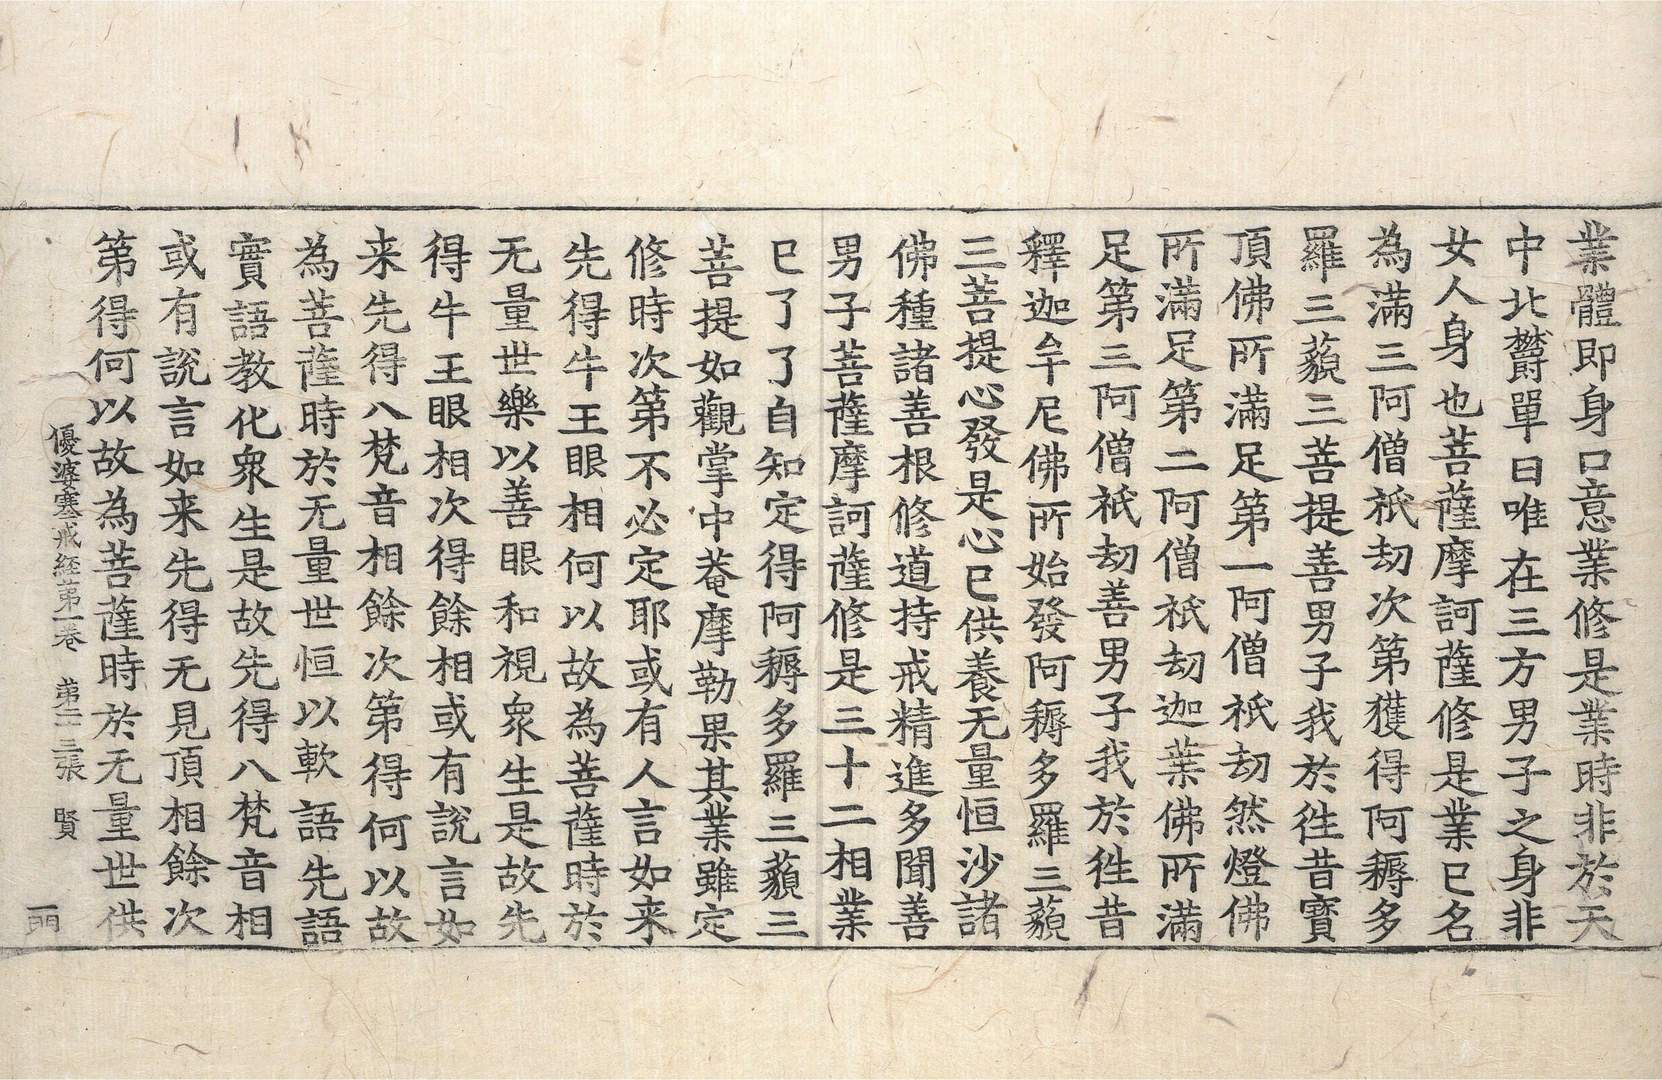 業體即身口意業修是業時非於天
中北欝單曰唯在三方男子之身非
女人身也菩薩摩訶薩修是業已名
為滿三阿僧祇劫次第獲得阿耨多
羅三藐三菩提善男子我於往昔寶
頂佛所滿足第一阿僧祇劫然燈佛
所滿足第二阿僧祇劫迦葉佛所滿
足第三阿僧祇劫善男子我於往昔
釋迦牟尼佛所始發阿耨多羅三藐
三菩提心發是心已供養无量恒沙諸
佛種諸善根修道持戒精進多聞善
男子菩薩摩訶薩修是三十二相業
已了了自知定得阿耨多羅三藐三
菩提如觀掌中菴摩勒果其業雖定
修時次第不必定耶或有人言如来
先得牛王眼相何以故為菩薩時於
无量世樂以善眼和視衆生是故先
得牛王眼相次得餘相或有說言如
来先得八梵音相餘次第得何以故
為菩薩時於无量世恒以軟語先語
實語教化衆生是故先得八梵音相
或有說言如来先得无見頂相餘次
第得何以故為菩薩時於无量世供
優婆塞戒経第一卷 第二十三張 賢